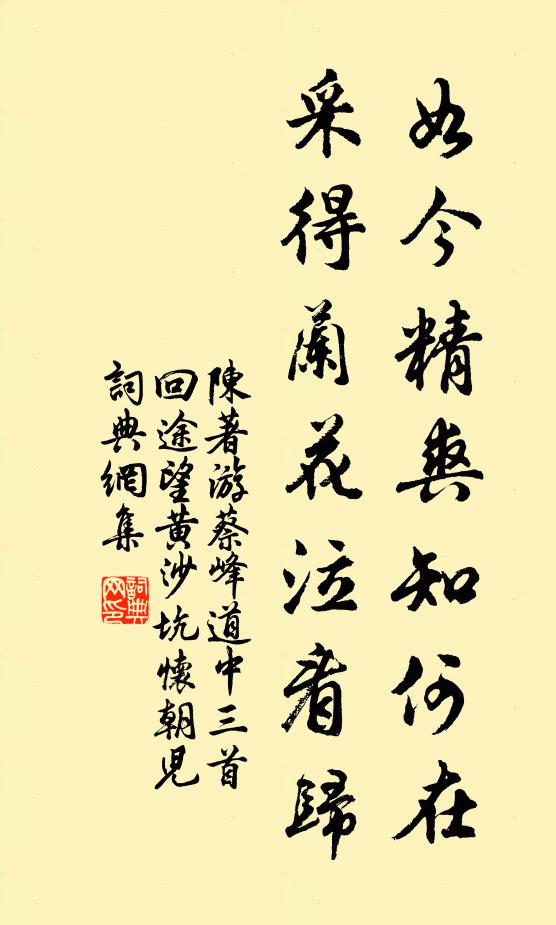 如今精爽知何在
采得蘭花泣看歸
陳著游蔡峰道中三首
回途望黃沙坑懷朝児
詞典網集
詞典
网印